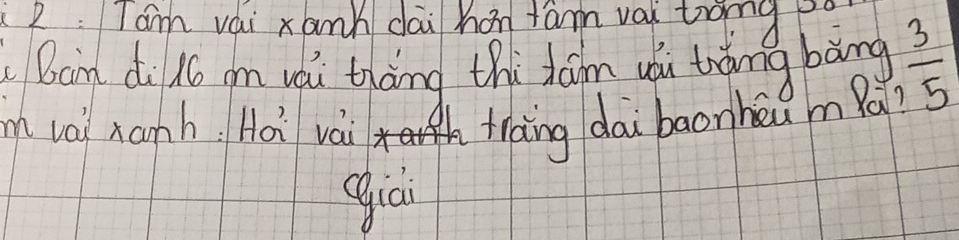 2: Tấm vải xanh dài hơn tấm vải trắng
Bán đi 16 m vải trắng thì tấm vải trắng bằng 3/5
m vải xanh. Hỏi vải trắng dài bao nhiêu m lá?
Giải